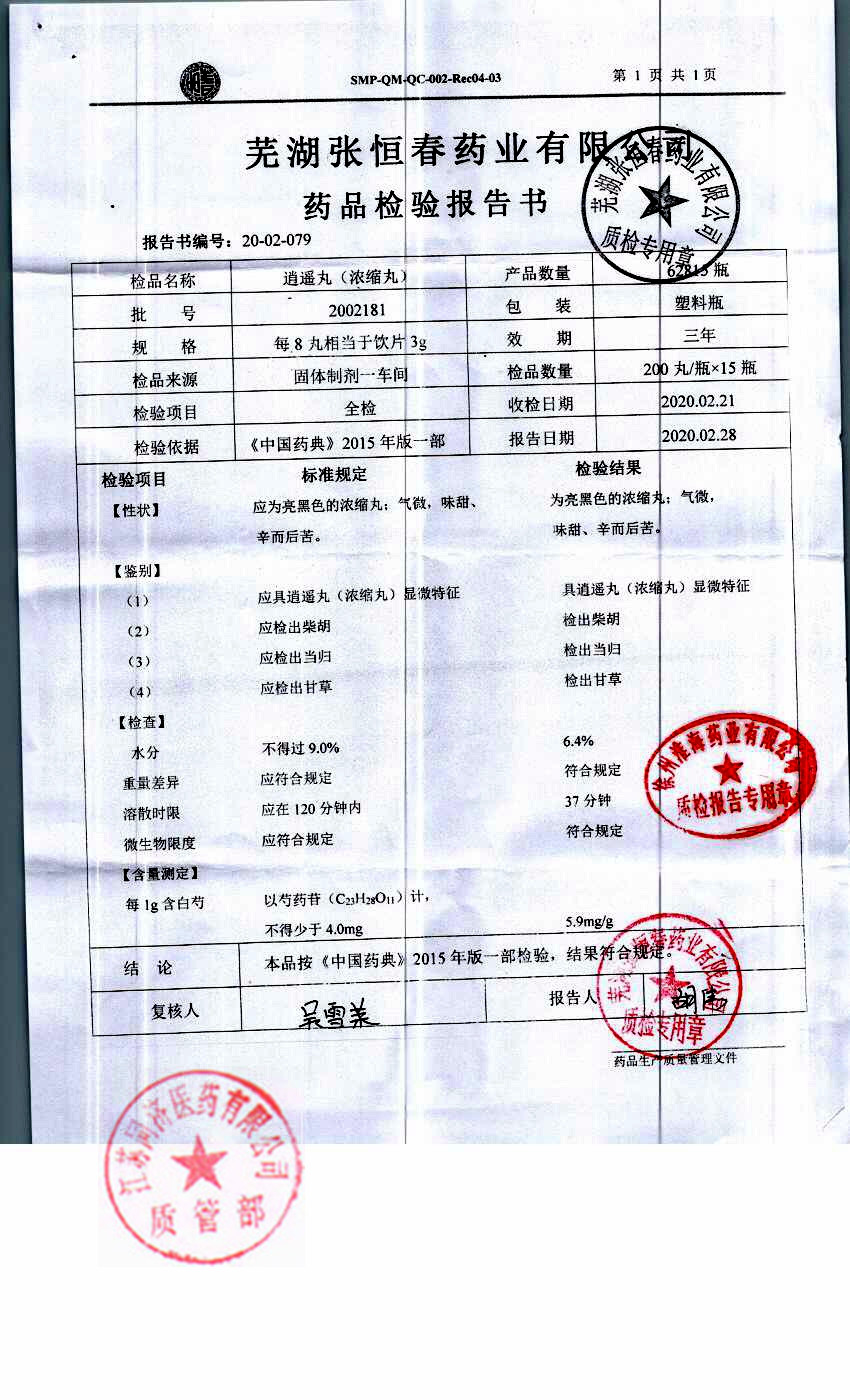 SMP-QM-QC-002-Rec04-03 第 1 页 共 1 页
芜湖张恒春药业有限公司
药品检验报告书
芜湖张恒春药业有限公司
质检专用章
报告书编号：20-02-079
检品名称 逍遥丸（浓缩丸） 产品数量 62815 瓶
批 号 2002181 包 装 塑料瓶
规 格 每 8 丸相当于饮片 3g 效 期 三年
检品来源 固体制剂一车间 检品数量 200 丸/瓶×15 瓶
检验项目 全检 收检日期 2020.02.21
检验依据 《中国药典》2015 年版一部 报告日期 2020.02.28
检验项目 标准规定 检验结果
【性状】 应为亮黑色的浓缩丸；气微，味甜、 为亮黑色的浓缩丸；气微，
辛而后苦。 味甜、辛而后苦。
【鉴别】
（1） 应具逍遥丸（浓缩丸）显微特征 具逍遥丸（浓缩丸）显微特征
（2） 应检出柴胡 检出柴胡
（3） 应检出当归 检出当归
（4） 应检出甘草 检出甘草
【检查】
水分 不得过 9.0% 6.4%
重量差异 应符合规定 符合规定
溶散时限 应在 120 分钟内 37 分钟
微生物限度 应符合规定 符合规定
徐州淮海药业有限公司
质检报告专用章
【含量测定】
每 1g 含白芍 以芍药苷（C23H28O11）计，
不得少于 4.0mg 5.9mg/g
结 论 本品按《中国药典》2015 年版一部检验，结果符合规定。
复核人 吴雪美 报告人
芜湖张恒春药业有限公司
质检专用章
药品生产质量管理文件
医药有限公司
质管部